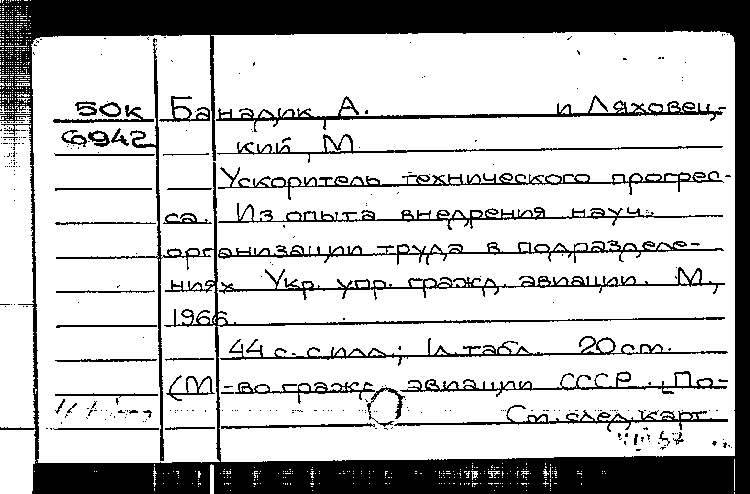 50к Банадик, А. и Ляховец-
6942 кий, М
Ускоритель технического прогрес-
са. Из опыта внедрения науч.
организации труда в подразделе-
ниях Укр. упр. гражд. авиации. М.,
1966.
44 с. с илл.; 1 л. табл. 20 см.
(М-во гражд. авиации СССР. "По-
См. след. карт.